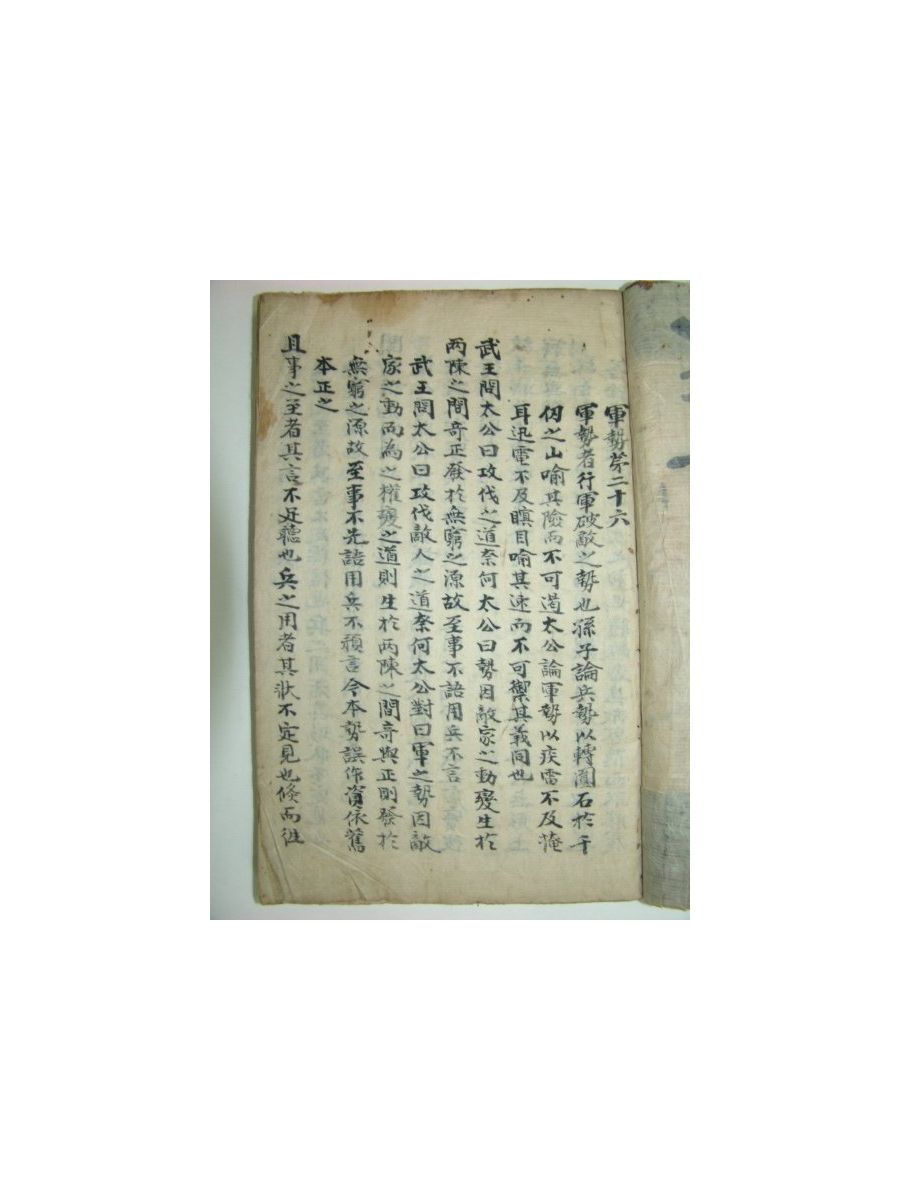 軍勢第二十六
軍勢者行軍破敵之勢也孫子論兵勢以轉圓石於千
仞之山喻其險而不可遏太公論軍勢以疾雷不及掩
耳迅電不及瞑目喻其速而不可禦其義同也
武王問太公曰攻伐之道奈何太公曰勢因敵家之動變生於
兩陳之間奇正發於無窮之源故至事不語用兵不言
武王問太公曰攻伐敵人之道奈何太公對曰軍之勢因敵
家之動而為之權變之道則生於兩陳之間奇與正則發於
無窮之源故至事不先語用兵不預言今本勢誤作資依舊
本正之
且事之至者其言不足聽也兵之用者其狀不定見也倏而徃